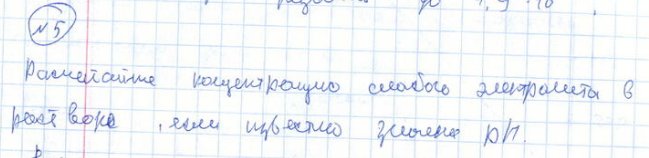 №5
Рассчитайте концентрацию слабого электролита в
растворе, если известно значение pH.